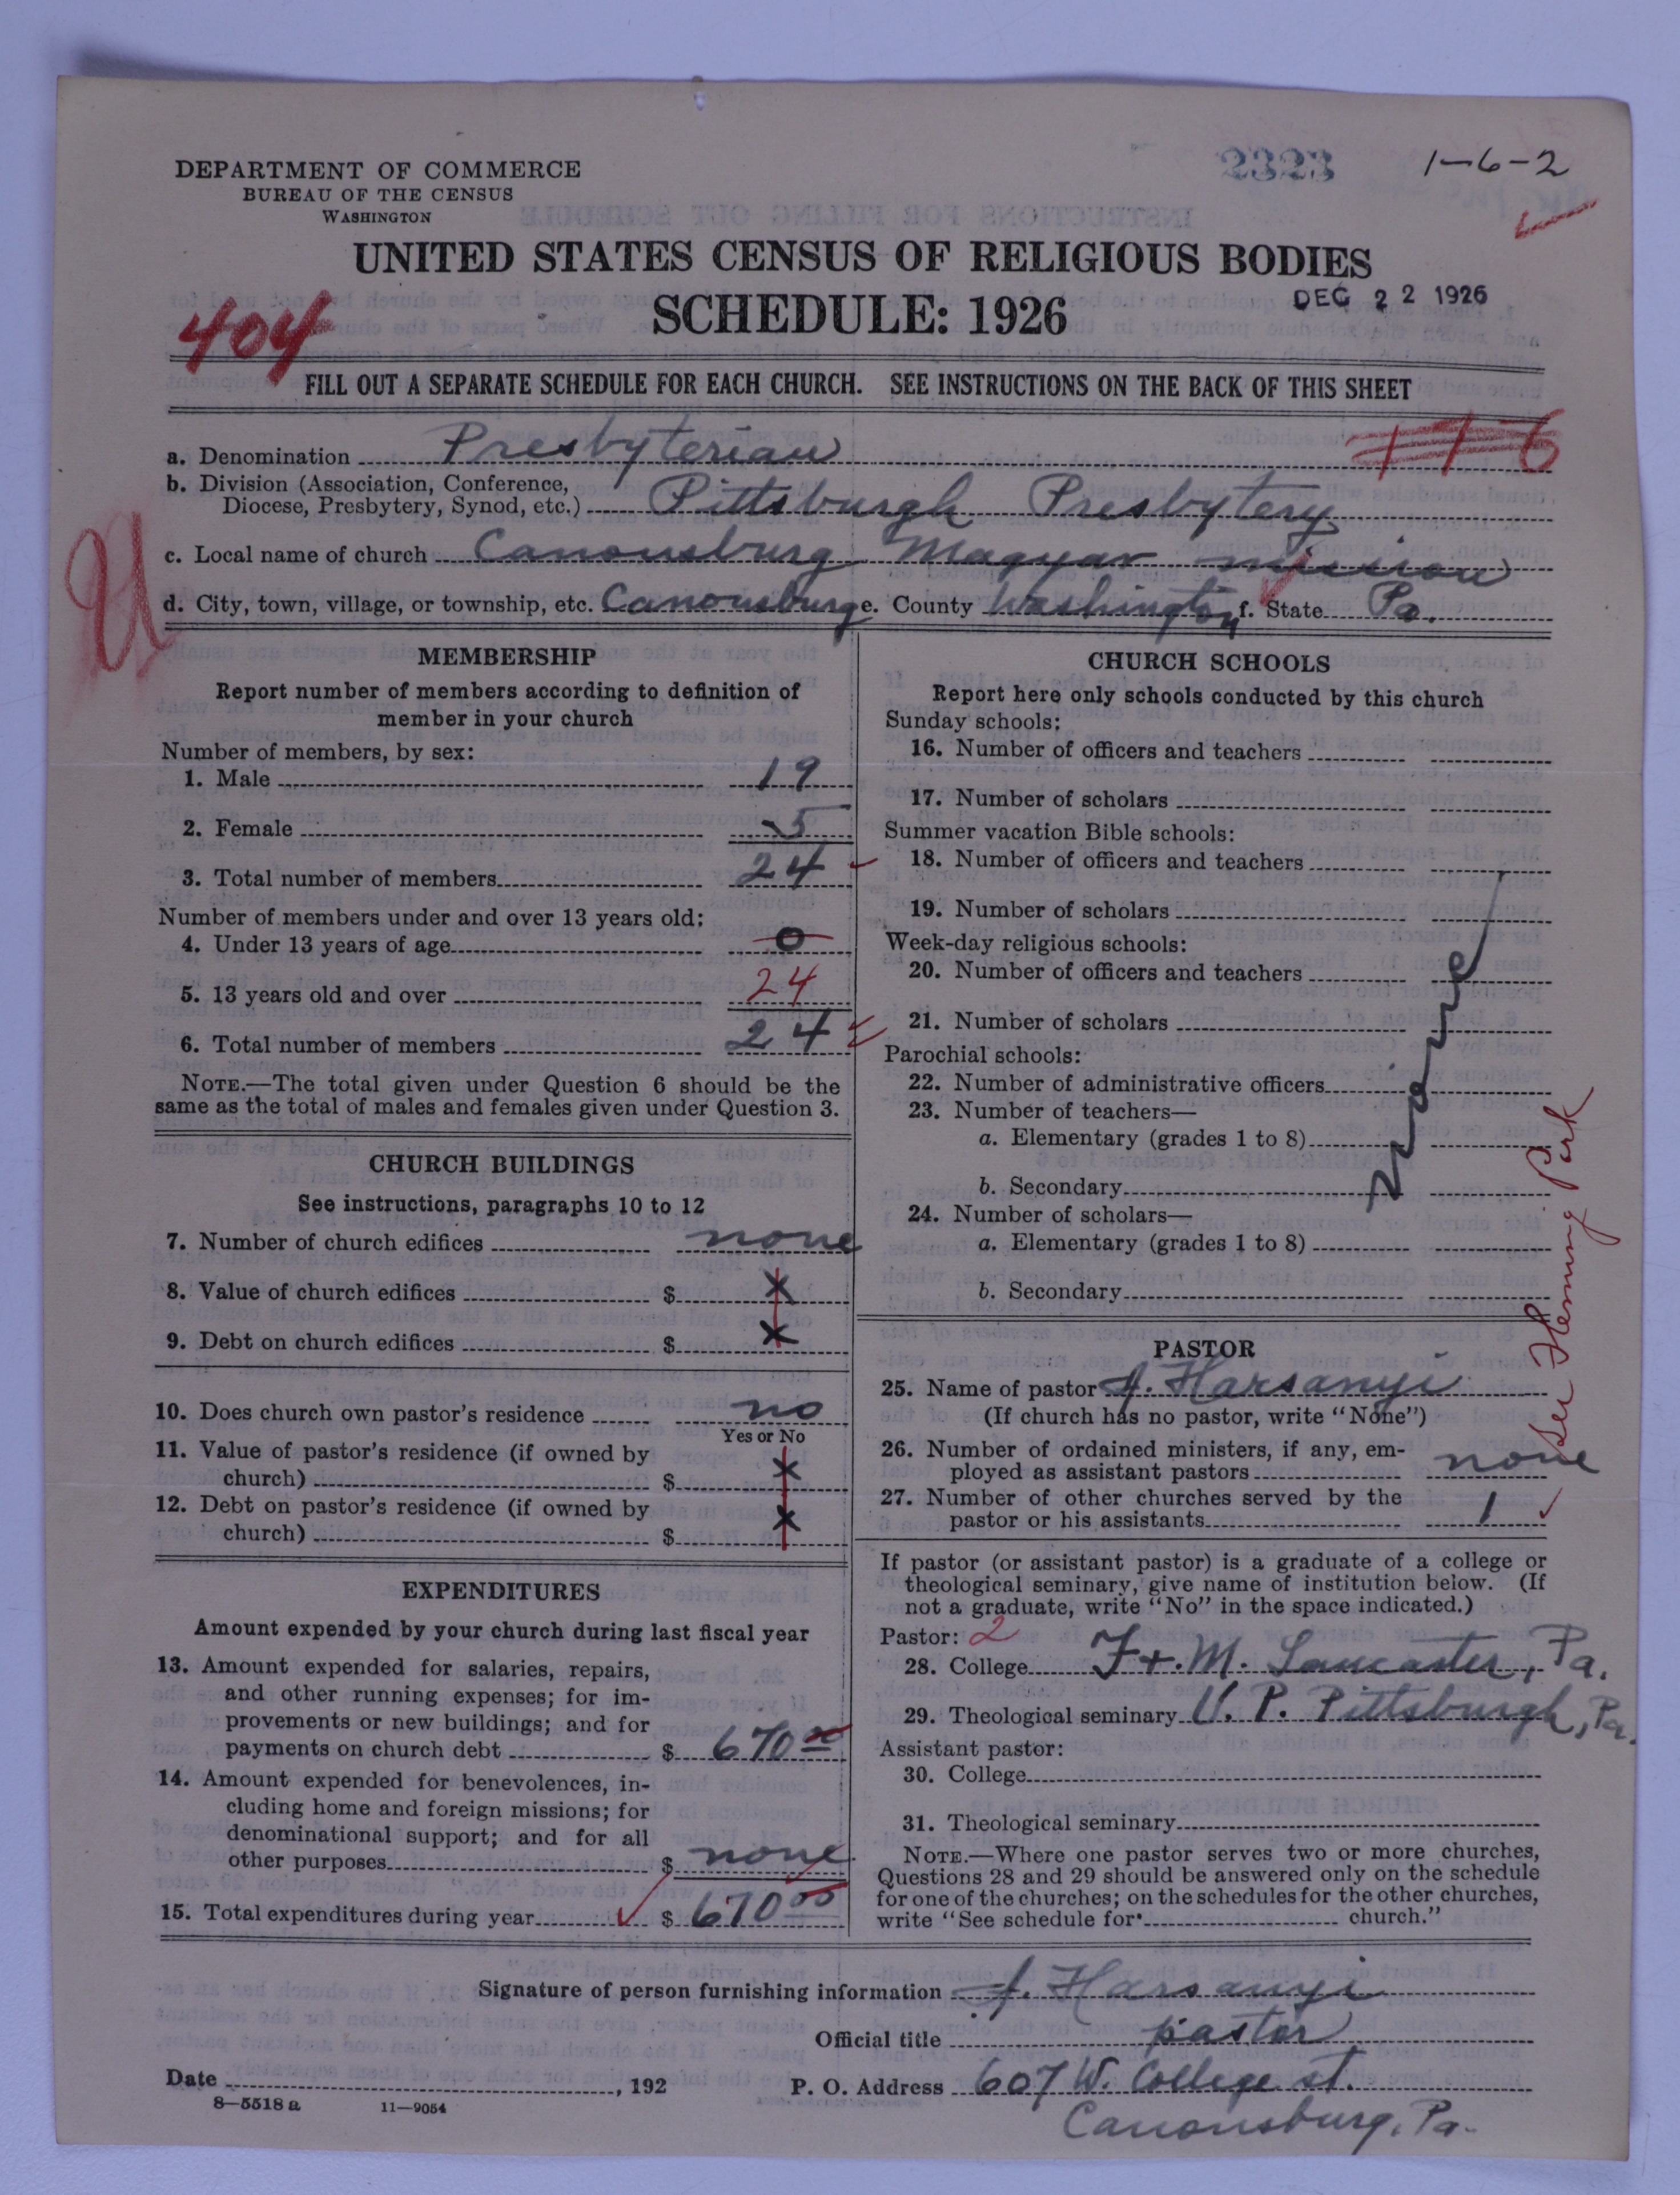 2323
1-6-2
DEPARTMENT OF COMMERCE
BUREAU OF THE CENSUS
WASHINGTON
UNITED STATES CENSUS OF RELIGIOUS BODIES
SCHEDULE: 1926
DEC 22 1926
404
FILL OUT A SEPARATE SCHEDULE FOR EACH CHURCH. SEE INSTRUCTIONS ON THE BACK OF THIS SHEET
a. Denomination Presbyterian
b. Division (Association, Conference,
Diocese, Presbytery, Synod, etc.) Pittsburgh Presbytery
c. Local name of church Canonsburg Magyar mission
d. City, town, village, or township, etc. Canonsburg e. County Washington f. State Pa.
MEMBERSHIP
Report number of members according to definition of
member in your church
Number of members, by sex:
1. Male 19
2. Female 5
3. Total number of members 24
Number of members under and over 13 years old:
4. Under 13 years of age 0
5. 13 years old and over 24
6. Total number of members 24
NOTE.—The total given under Question 6 should be the
same as the total of males and females given under Question 3.
CHURCH BUILDINGS
See instructions, paragraphs 10 to 12
7. Number of church edifices none
8. Value of church edifices $ x
9. Debt on church edifices $ x
10. Does church own pastor's residence no
Yes or No
11. Value of pastor's residence (if owned by
church) $ x
12. Debt on pastor's residence (if owned by
church) $ x
EXPENDITURES
Amount expended by your church during last fiscal year
13. Amount expended for salaries, repairs,
and other running expenses; for im-
provements or new buildings; and for
payments on church debt $ 670 00
14. Amount expended for benevolences, in-
cluding home and foreign missions; for
denominational support; and for all
other purposes $ none
15. Total expenditures during year $ 670 00
CHURCH SCHOOLS
Report here only schools conducted by this church
Sunday schools:
16. Number of officers and teachers
17. Number of scholars
Summer vacation Bible schools:
18. Number of officers and teachers
19. Number of scholars
Week-day religious schools:
20. Number of officers and teachers
21. Number of scholars
Parochial schools:
22. Number of administrative officers
23. Number of teachers—
a. Elementary (grades 1 to 8)
b. Secondary
24. Number of scholars—
a. Elementary (grades 1 to 8)
b. Secondary
none
See Fleming Park
PASTOR
25. Name of pastor J. Harsanyi
(If church has no pastor, write "None")
26. Number of ordained ministers, if any, em-
ployed as assistant pastors none
27. Number of other churches served by the
pastor or his assistants 1
If pastor (or assistant pastor) is a graduate of a college or
theological seminary, give name of institution below. (If
not a graduate, write "No" in the space indicated.)
Pastor: 2
28. College F. + M. Lancaster, Pa.
29. Theological seminary U. P. Pittsburgh, Pa.
Assistant pastor:
30. College
31. Theological seminary
NOTE.—Where one pastor serves two or more churches,
Questions 28 and 29 should be answered only on the schedule
for one of the churches; on the schedules for the other churches,
write "See schedule for church."
Signature of person furnishing information J. Harsanyi
Official title pastor
Date , 192
P. O. Address 607 W. College st.
Canonsburg, Pa.
8—5518 a 11—9054